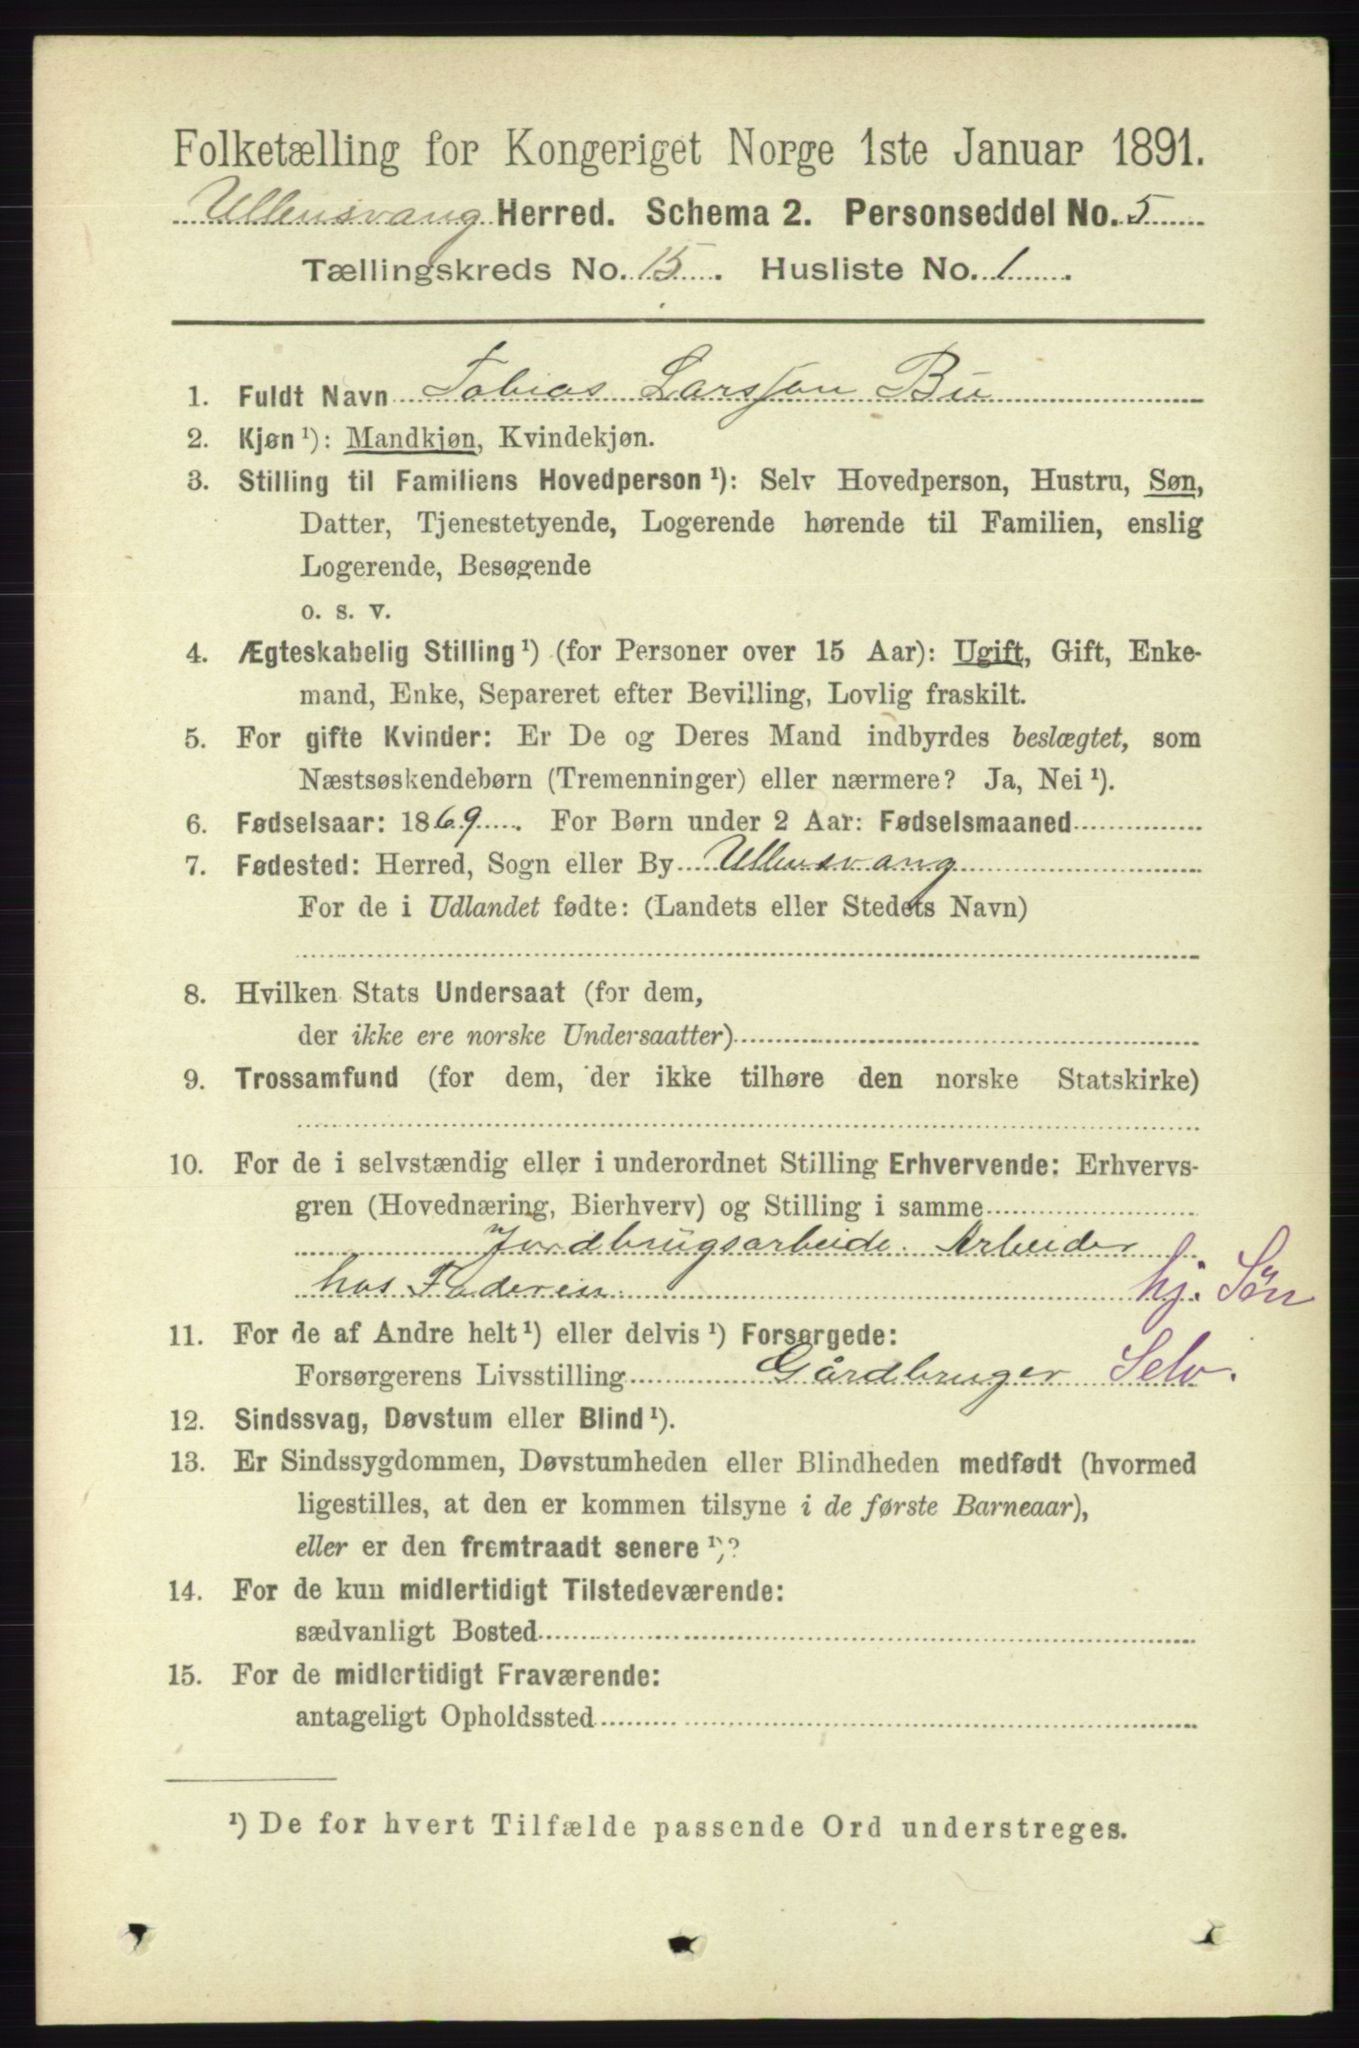 Folketælling for Kongeriget Norge 1ste Januar 1891.
Ullensvang Herred. Schema 2. Personseddel No. 5
Tællingskreds No. 15. Husliste No. 1.
1. Fuldt Navn Tobias Larsson Bu
2. Kjøn ¹): Mandkjøn, Kvindekjøn.
3. Stilling til Familiens Hovedperson ¹): Selv Hovedperson, Hustru, Søn,
Datter, Tjenestetyende, Logerende hørende til Familien, enslig
Logerende, Besøgende
o. s. v.
4. Ægteskabelig Stilling ¹) (for Personer over 15 Aar): Ugift, Gift, Enke-
mand, Enke, Separeret efter Bevilling, Lovlig fraskilt.
5. For gifte Kvinder: Er De og Deres Mand indbyrdes beslægtet, som
Næstsøskendebørn (Tremenninger) eller nærmere? Ja, Nei ¹).
6. Fødselsaar: 1869. For Børn under 2 Aar: Fødselsmaaned
7. Fødested: Herred, Sogn eller By Ullensvang
For de i Udlandet fødte: (Landets eller Stedets Navn)
8. Hvilken Stats Undersaat (for dem,
der ikke ere norske Undersaatter)
9. Trossamfund (for dem, der ikke tilhøre den norske Statskirke)
10. For de i selvstændig eller i underordnet Stilling Erhvervende: Erhvervs-
gren (Hovednæring, Bierhverv) og Stilling i samme
Jordbrugsarbeide. Arbeider
hos Faderen hj. Søn
11. For de af Andre helt ¹) eller delvis ¹) Forsørgede:
Forsørgerens Livsstilling Gårdbruger Selv.
12. Sindssvag, Døvstum eller Blind ¹).
13. Er Sindssygdommen, Døvstumheden eller Blindheden medfødt (hvormed
ligestilles, at den er kommen tilsyne i de første Barneaar),
eller er den fremtraadt senere ¹)?
14. For de kun midlertidigt Tilstedeværende:
sædvanligt Bosted
15. For de midlertidigt Fraværende:
antageligt Opholdssted
¹) De for hvert Tilfælde passende Ord understreges.